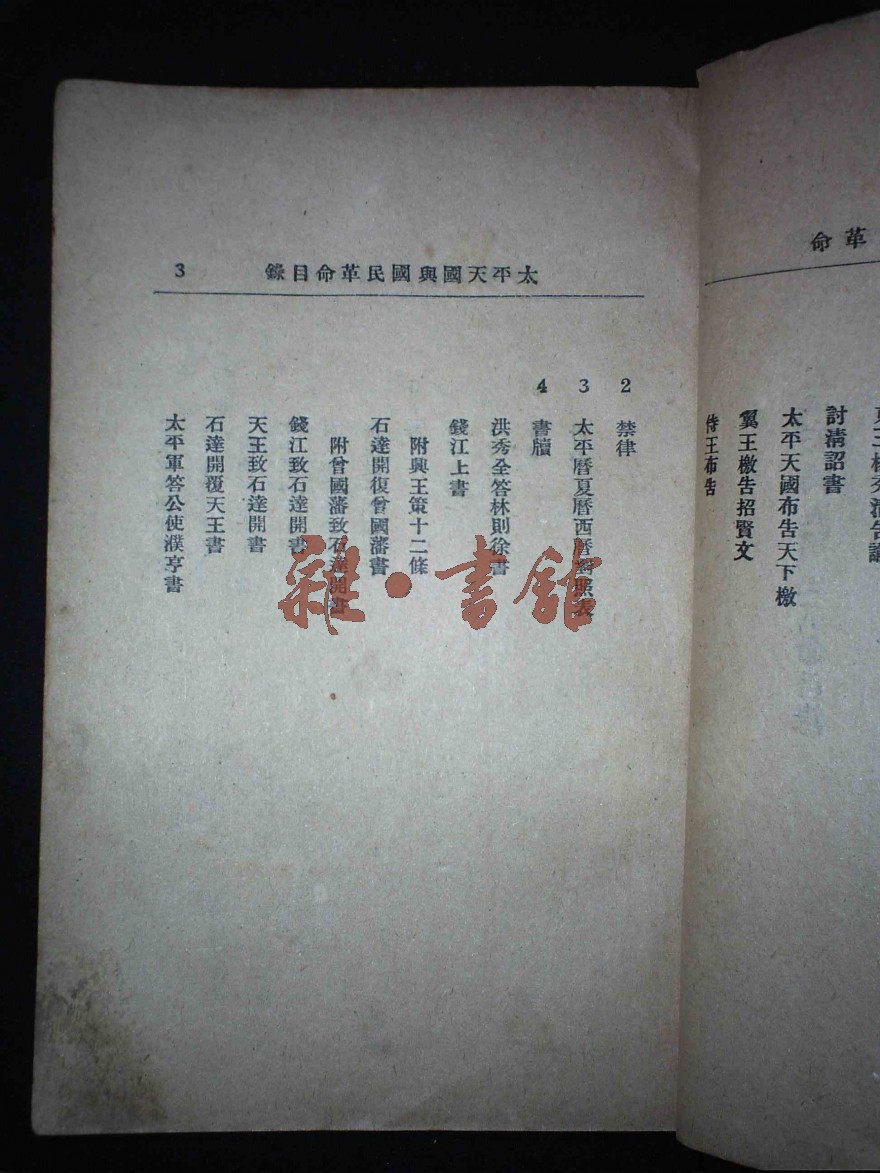 革命
討清詔書
太平天國布告天下檄
翼王檄告招賢文
侍王布告
太平天國與國民革命目錄 3
2 禁律
3 太平曆夏曆西曆對照表
4 書牘
洪秀全答林則徐書
錢江上書
附興王策十二條
石達開復曾國藩書
附曾國藩致石達開書
錢江致石達開書
天王致石達開書
石達開覆天王書
太平軍答公使濮亨書
雜·書館